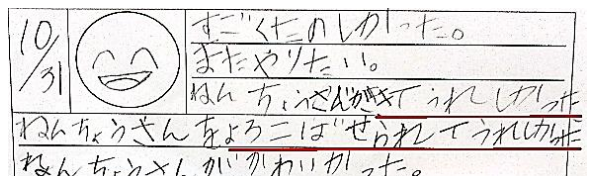 10/31
すごくたのしかった。
またやりたい。
ねんちょうさんがきてうれしかった
ねんちょうさんをよろこばせられてうれしかった
ねんちょうさんがかわいかった。